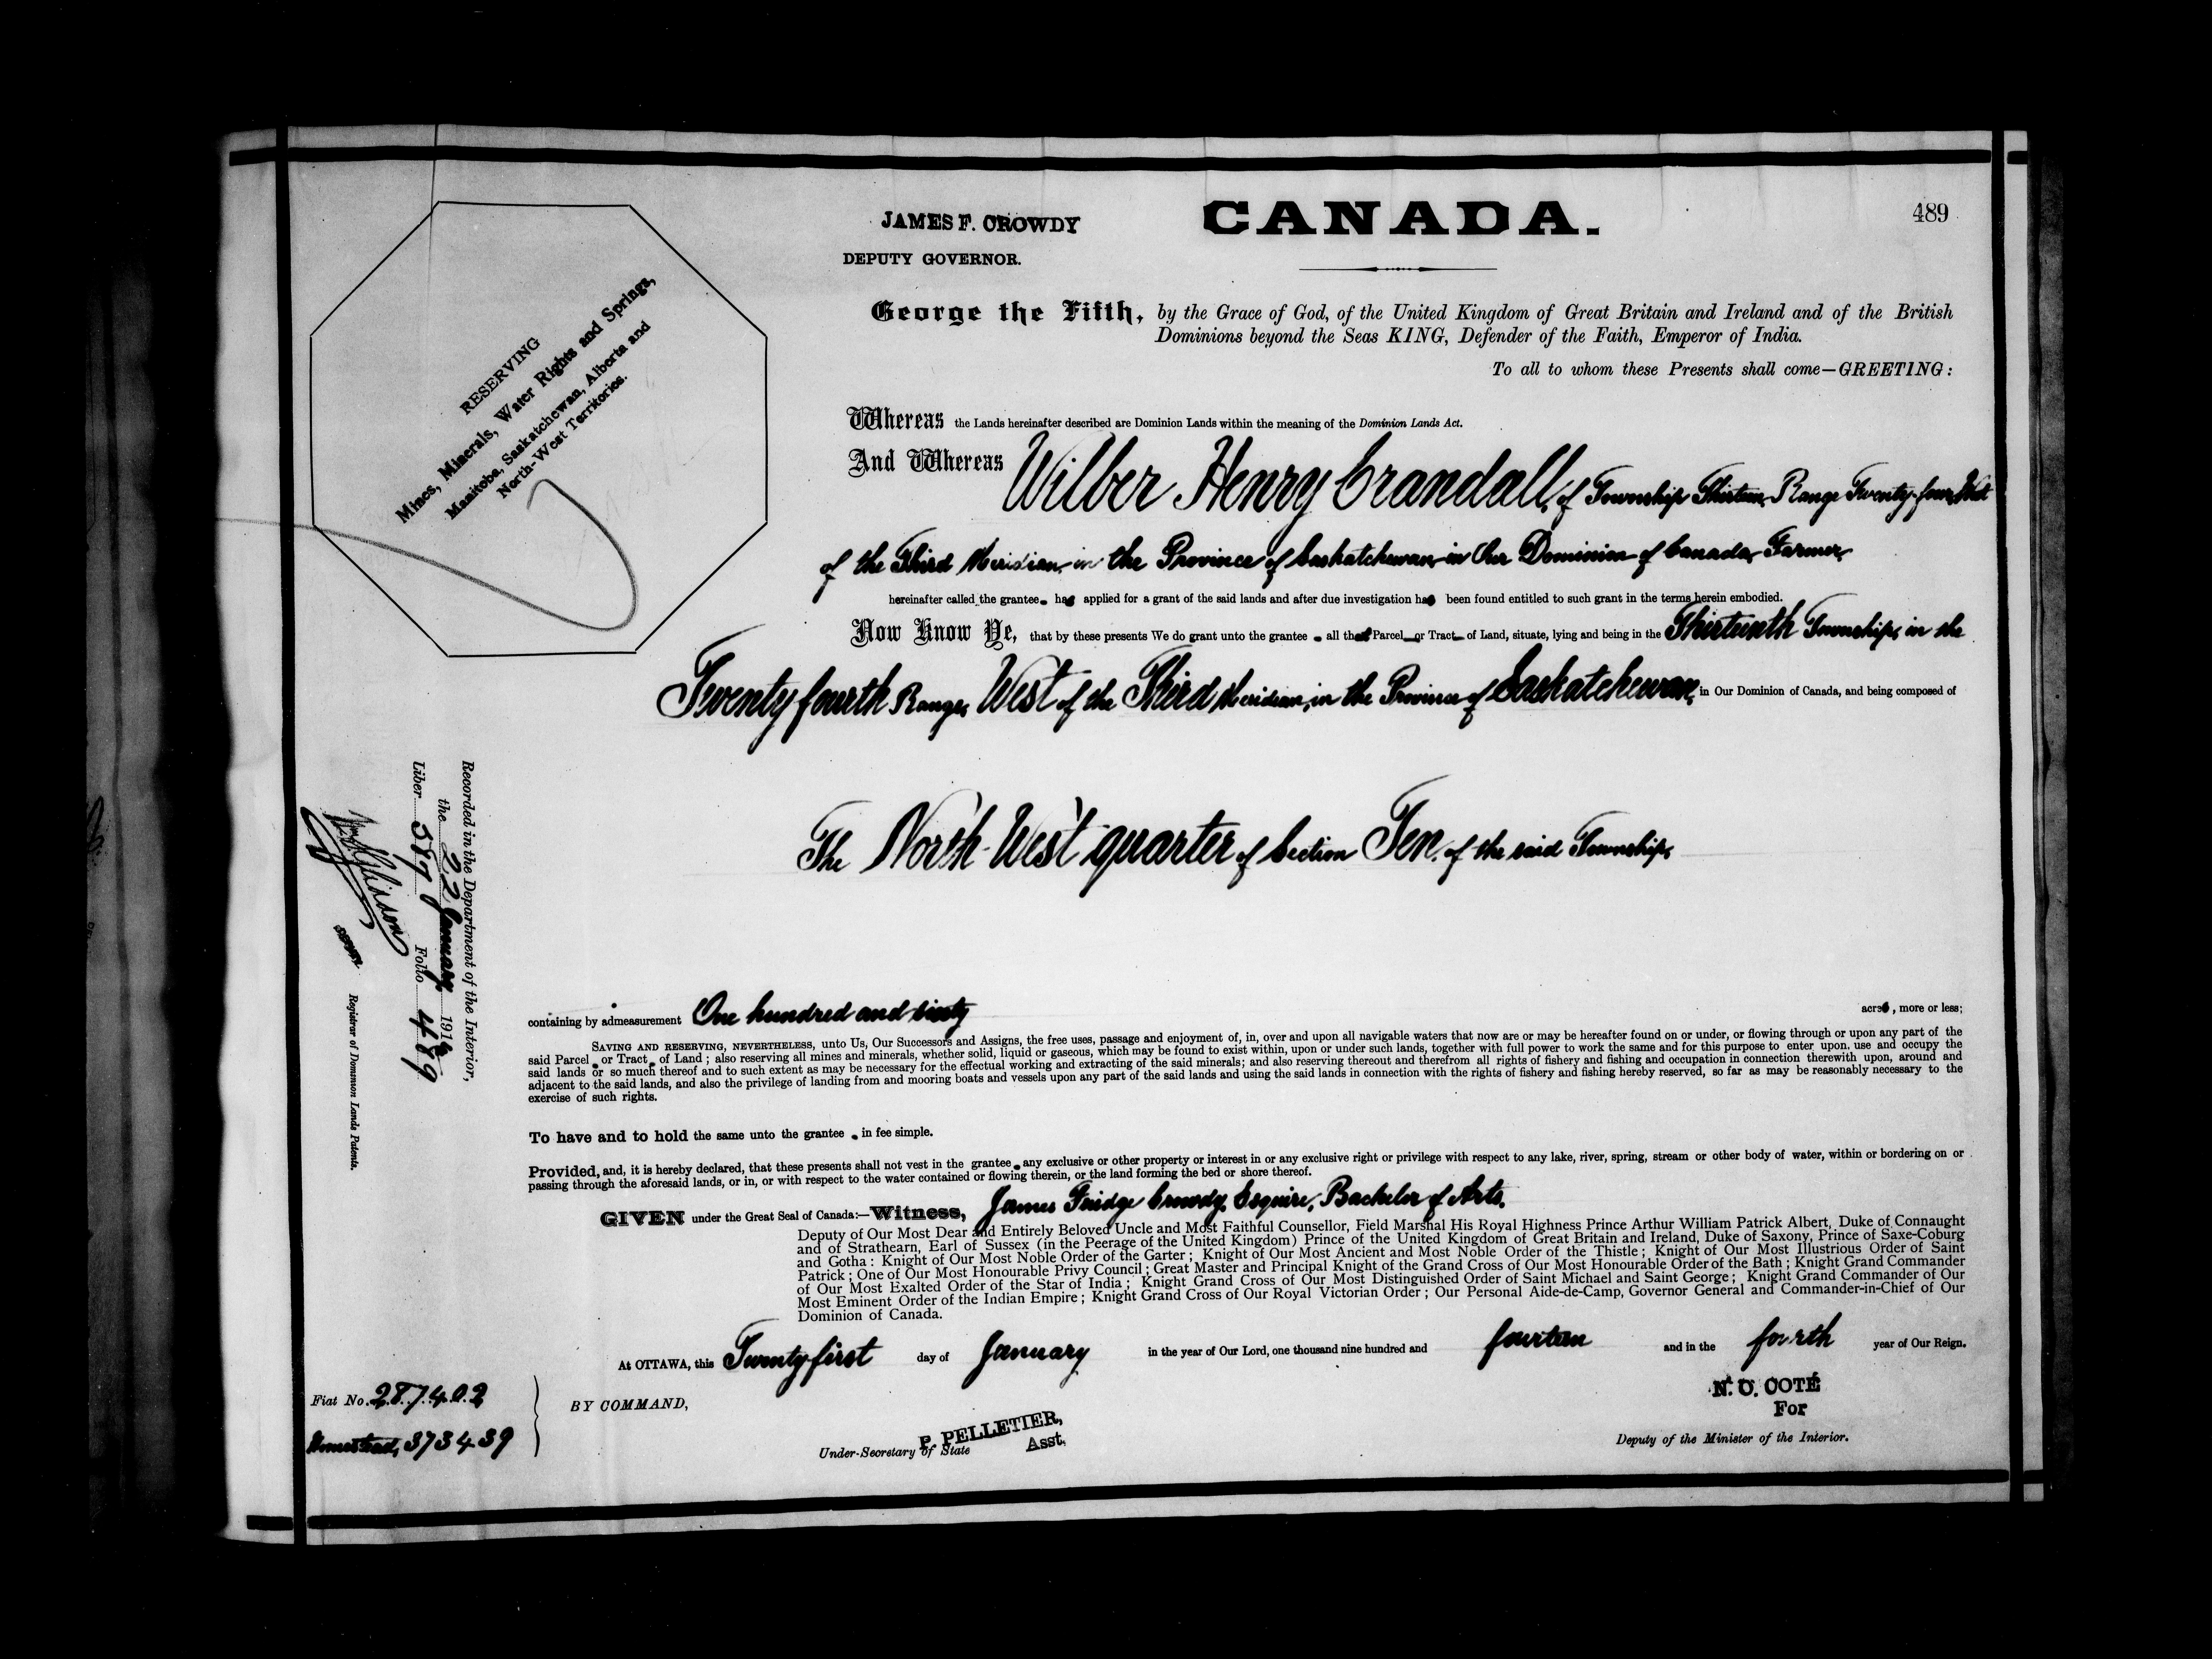 JAMES F. CROWDY
DEPUTY GOVERNOR.
CANADA.
489
RESERVING
Mines, Minerals, Water Rights and Springs,
Manitoba, Saskatchewan, Alberta and
North-West Territories.
George the Fifth, by the Grace of God, of the United Kingdom of Great Britain and Ireland and of the British
Dominions beyond the Seas KING, Defender of the Faith, Emperor of India.
To all to whom these Presents shall come—GREETING:
Whereas the Lands hereinafter described are Dominion Lands within the meaning of the Dominion Lands Act.
And Whereas Wilber Henry Crandall, of Township Thirteen, Range Twenty-four, West
of the Third Meridian, in the Province of Saskatchewan, in Our Dominion of Canada, Farmer,
hereinafter called the grantee has applied for a grant of the said lands and after due investigation has been found entitled to such grant in the terms herein embodied.
Now Know Ye, that by these presents We do grant unto the grantee all that Parcel or Tract of Land, situate, lying and being in the Thirteenth Township, in the
Twenty fourth Range, West of the Third Meridian, in the Province of Saskatchewan, in Our Dominion of Canada, and being composed of
The North-West quarter of Section Ten, of the said Township,
containing by admeasurement One hundred and sixty acres, more or less;
SAVING AND RESERVING, NEVERTHELESS, unto Us, Our Successors and Assigns, the free uses, passage and enjoyment of, in, over and upon all navigable waters that now are or may be hereafter found on or under, or flowing through or upon any part of the
said Parcel or Tract of Land; also reserving all mines and minerals, whether solid, liquid or gaseous, which may be found to exist within, upon or under such lands, together with full power to work the same and for this purpose to enter upon, use and occupy the
said lands or so much thereof and to such extent as may be necessary for the effectual working and extracting of the said minerals; and also reserving thereout and therefrom all rights of fishery and fishing and occupation in connection therewith upon, around and
adjacent to the said lands, and also the privilege of landing from and mooring boats and vessels upon any part of the said lands and using the said lands in connection with the rights of fishery and fishing hereby reserved, so far as may be reasonably necessary to the
exercise of such rights.
To have and to hold the same unto the grantee in fee simple.
Provided, and, it is hereby declared, that these presents shall not vest in the grantee any exclusive or other property or interest in or any exclusive right or privilege with respect to any lake, river, spring, stream or other body of water, within or bordering on or
passing through the aforesaid lands, or in, or with respect to the water contained or flowing therein, or the land forming the bed or shore thereof.
GIVEN under the Great Seal of Canada:—Witness, James Fridge Crowdy, Esquire, Bachelor of Arts,
Deputy of Our Most Dear and Entirely Beloved Uncle and Most Faithful Counsellor, Field Marshal His Royal Highness Prince Arthur William Patrick Albert, Duke of Connaught
and of Strathearn, Earl of Sussex (in the Peerage of the United Kingdom) Prince of the United Kingdom of Great Britain and Ireland, Duke of Saxony, Prince of Saxe-Coburg
and Gotha: Knight of Our Most Noble Order of the Garter; Knight of Our Most Ancient and Most Noble Order of the Thistle; Knight of Our Most Illustrious Order of Saint
Patrick; One of Our Most Honourable Privy Council; Great Master and Principal Knight of the Grand Cross of Our Most Honourable Order of the Bath; Knight Grand Commander
of Our Most Exalted Order of the Star of India; Knight Grand Cross of Our Most Distinguished Order of Saint Michael and Saint George; Knight Grand Commander of Our
Most Eminent Order of the Indian Empire; Knight Grand Cross of Our Royal Victorian Order; Our Personal Aide-de-Camp, Governor General and Commander-in-Chief of Our
Dominion of Canada.
At OTTAWA, this Twenty first day of January in the year of Our Lord, one thousand nine hundred and fourteen and in the fourth year of Our Reign.
Fiat No. 287402
Homestead, 373439
BY COMMAND,
P. PELLETIER,
Under-Secretary of State Asst.
N. O. COTÉ
For
Deputy of the Minister of the Interior.
Recorded in the Department of the Interior,
the 22 January 1914
Liber 587 Folio 489
DEPUTY
Registrar of Dominion Lands Patents.